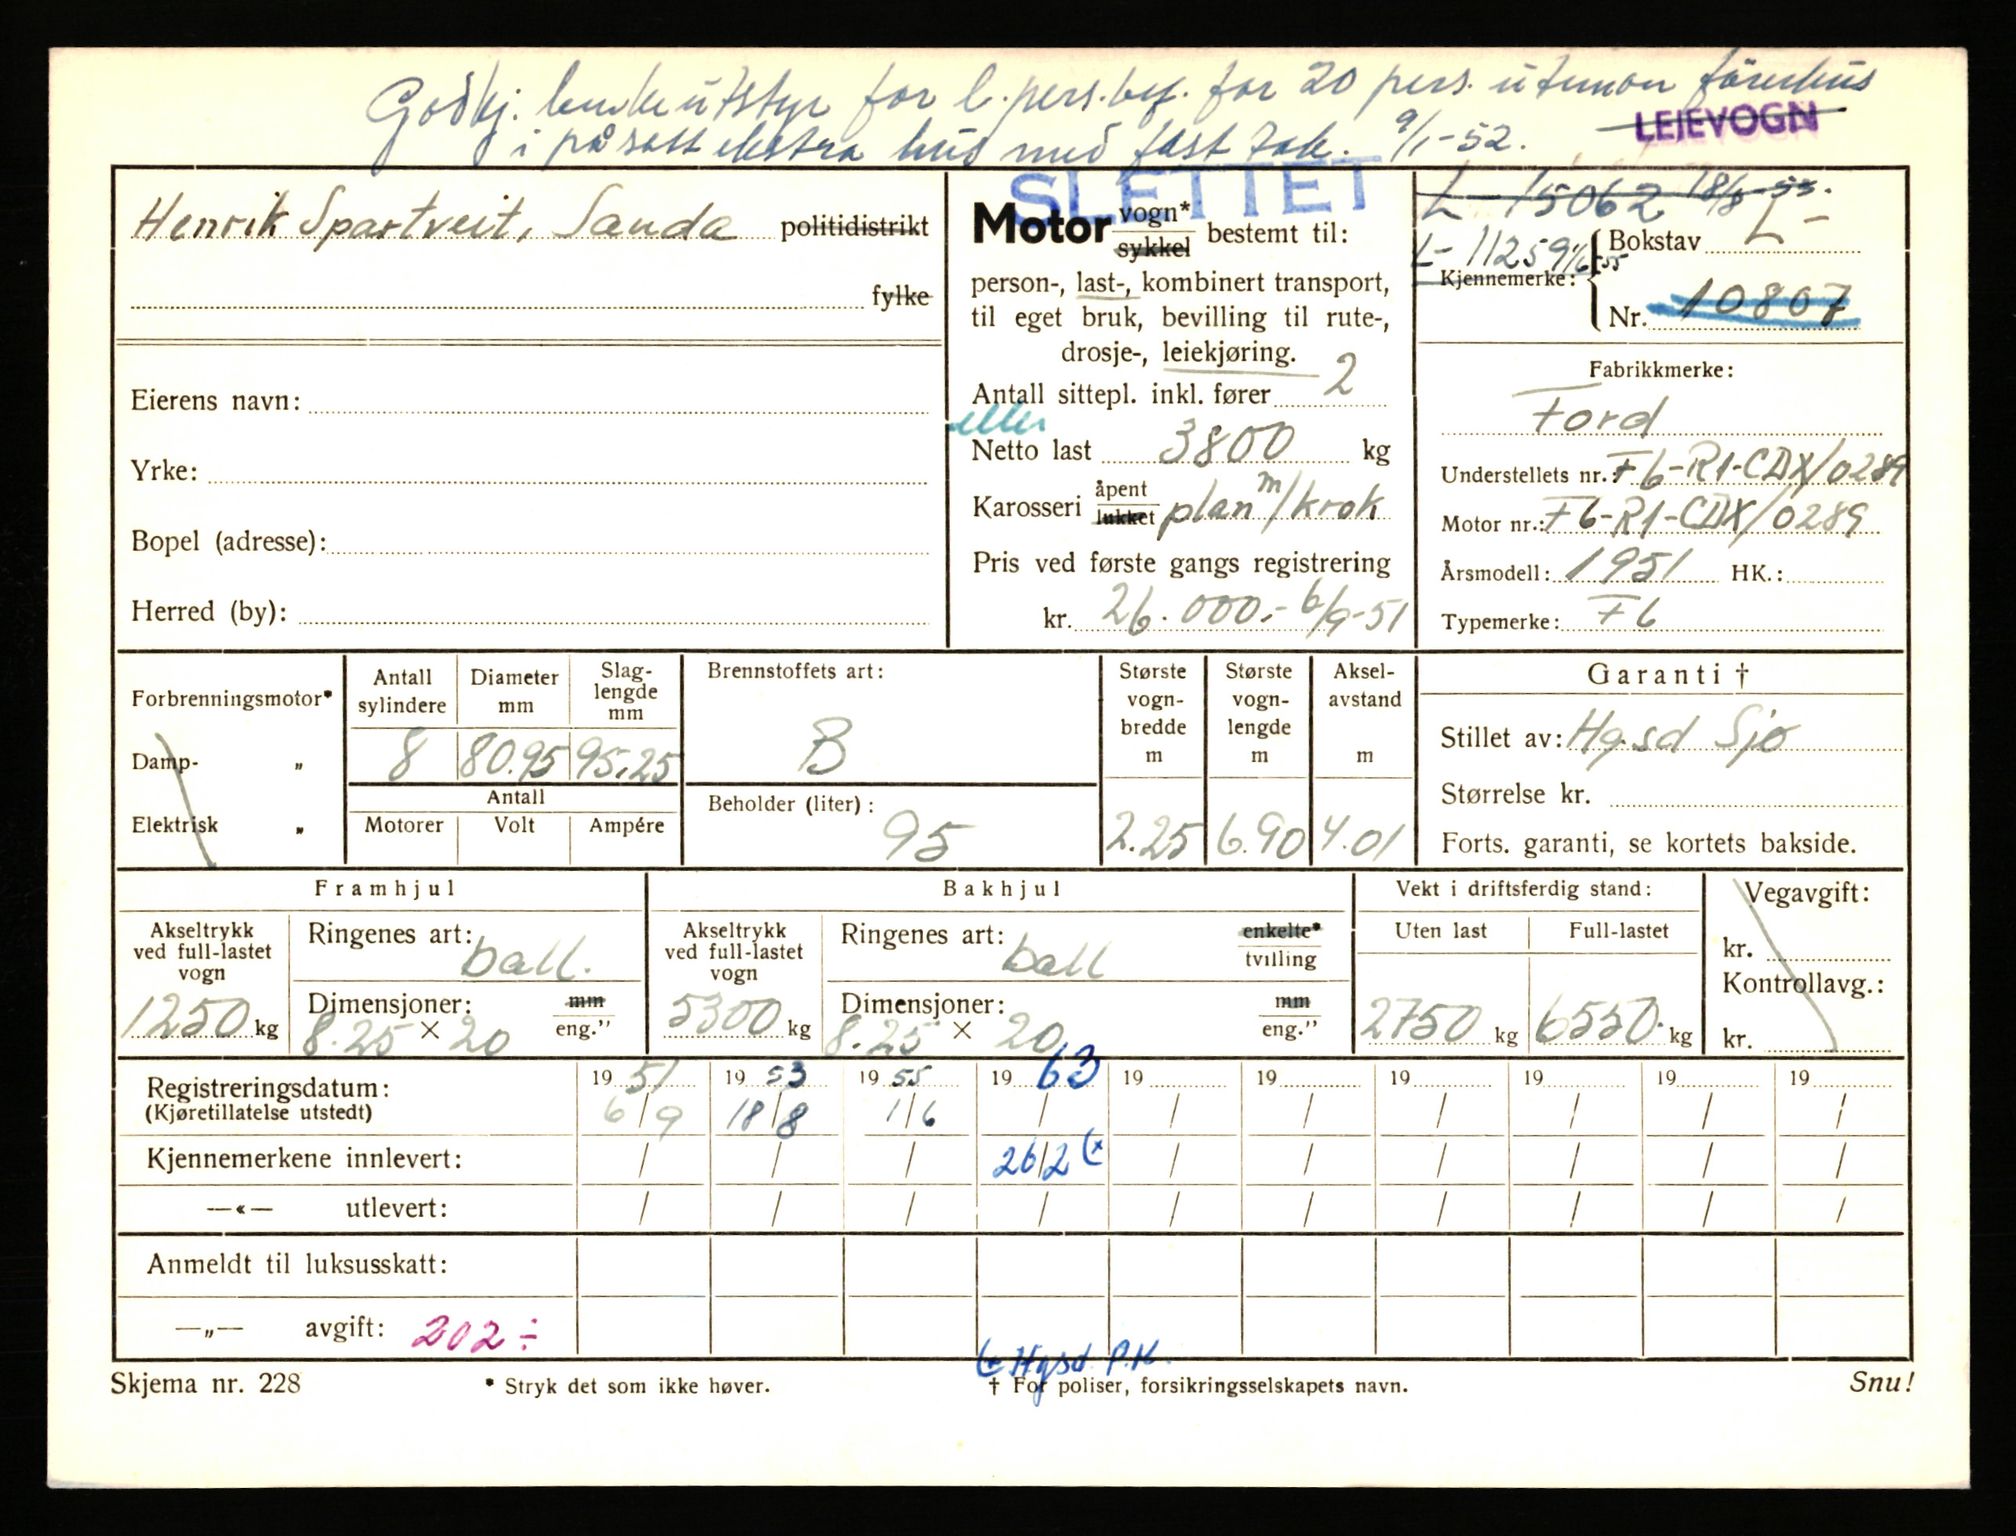 Godkj. benkeutstyr for l. pers.bef. for 20 pers. utenom førerhus
i påsatt ekstra hus med fast tak. 9/1-52.
LEIEVOGN
SLETTET
Henrik Spartveit, Sauda politidistrikt
fylke
Eierens navn:
Yrke:
Bopel (adresse):
Herred (by):
Motor vogn* sykkel bestemt til:
person-, last-, kombinert transport,
til eget bruk, bevilling til rute-,
drosje-, leiekjøring.
Antall sittepl. inkl. fører 2
eller
Netto last 3800 kg
Karosseri åpent lukket plan m/krok
Pris ved første gangs registrering
kr. 26.000.- 6/9-51
L-15062 18/8-53.
L-11259 1/6-55
Kjennemerke: Bokstav L-
Nr. 10807
Fabrikkmerke:
Ford
Understellets nr.: F6-R1-CDX/0289
Motor nr.: F6-R1-CDX/0289
Årsmodell: 1951 HK.:
Typemerke: F6
Forbrenningsmotor*
Damp- „
Elektrisk „
Antall sylindere
Diameter mm
Slag-lengde mm
8 80.95 95.25
Antall
Motorer Volt Ampére
Brennstoffets art:
B
Beholder (liter):
95
Største vogn-bredde m
2.25
Største vogn-lengde m
6.90
Aksel-avstand m
4.01
Garanti †
Stillet av: Hgsd Sjø
Størrelse kr.
Forts. garanti, se kortets bakside.
Framhjul
Akseltrykk ved full-lastet vogn
1250 kg
Ringenes art: ball.
Dimensjoner: mm
8.25 × 20 eng.”
Bakhjul
Akseltrykk ved full-lastet vogn
5300 kg
Ringenes art: ball enkelte* tvilling
Dimensjoner: mm
8.25 × 20 eng.”
Vekt i driftsferdig stand:
Uten last Full-lastet
2750 kg 6550 kg
Vegavgift:
kr.
Kontrollavg.:
kr.
Registreringsdatum: 19 51 19 53 19 55 19 63 19 19 19 19 19 19
(Kjøretillatelse utstedt) 6/9 18/8 1/6 / / / / / / /
Kjennemerkene innlevert: / / / 26/2 (* / / / / / /
—«— utlevert: / / / / / / / / / /
Anmeldt til luksusskatt:
—„— avgift: 202 ÷
(* Hgsd. P.K.
Skjema nr. 228 * Stryk det som ikke høver. † For poliser, forsikringsselskapets navn. Snu!